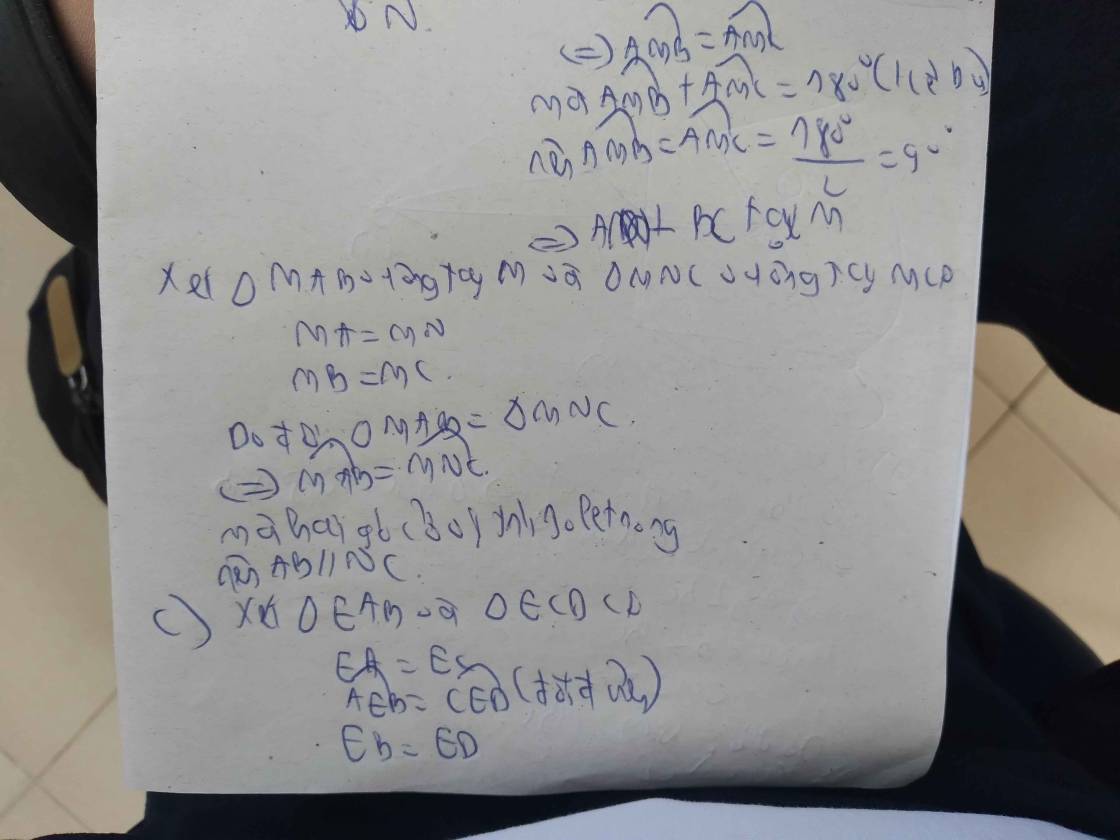 N.
=> AMB = AMC
mà AMB + AMC = 180° (kề bù)
nên AMB = AMC = 180°/2 = 90°
=> AM ⊥ BC tại M
Xét Δ MAB vuông tại M và Δ MNC vuông tại M có
MA = MN
MB = MC.
Do đó: Δ MAB = Δ MNC.
=> MAB = MNC.
mà hai góc ở vị trí so le trong
nên AB // NC.
c) Xét Δ EAB và Δ ECD có
EA = EC
AEB = CED (đối đỉnh)
EB = ED